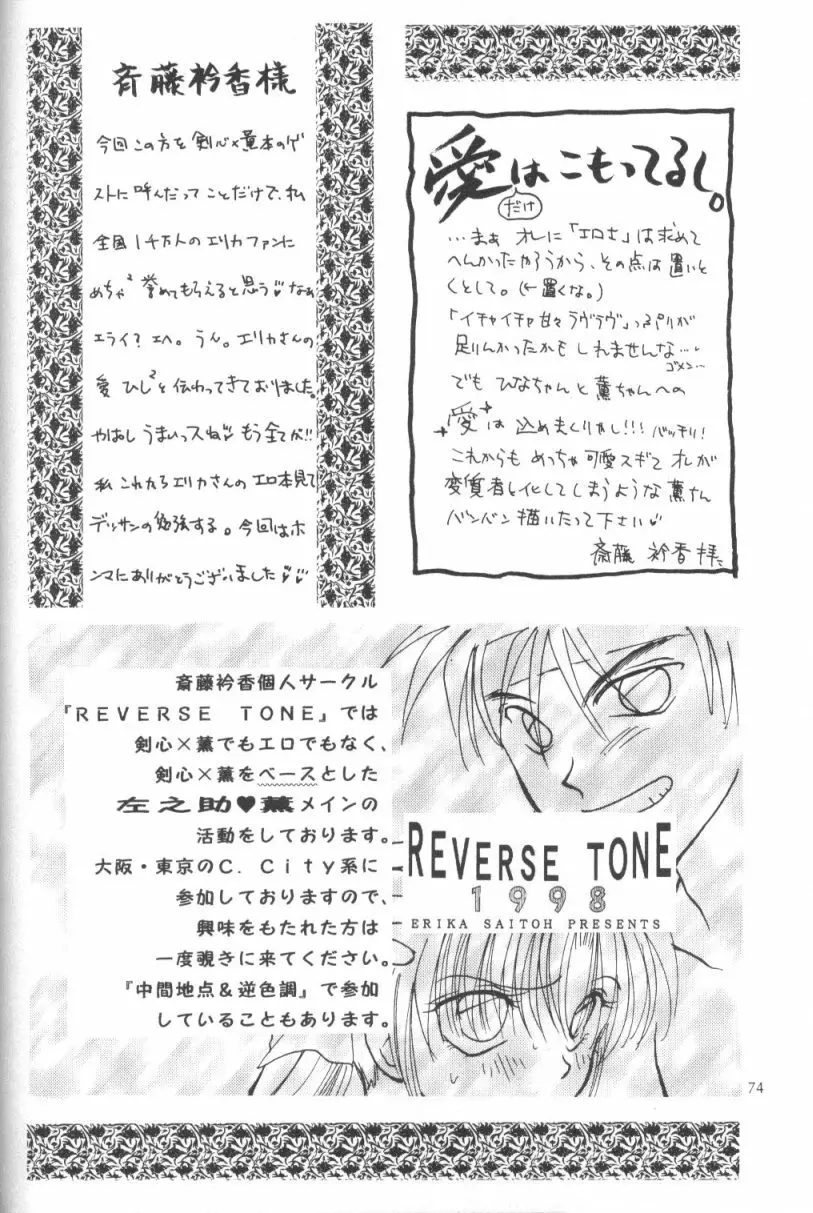 斉藤衿香様
今回この方を剣心×薫本のゲ
ストに呼んだってことだけで、私
全国1千万人のエリカファンに
めちゃ²誉めてもらえると思う♡なあ
エライ?エヘ。うん。エリカさんの
愛ひし²と伝わってきておりました。
やぱしうまいっスね♡もう全てが!!
私これからエリカさんのエロ本見て
デッサンの勉強する。今回はホ
ンマにありがとうございました♡♡
愛はこもってるし。
だけ
…まぁオレに「エロさ」は求めて
へんかったやろうから、その点は置いと
くとして。(←置くな。)
「イチャイチャ甘々ラヴラヴ」っぷりが
足りんかったかもしれませんな…
ゴメン…
でもひなちゃんと薫ちゃんへの
愛は込めまくりやし!!!バッチリ!
これからもめっちゃ可愛スギてオレが
変質者と化してしまうような薫さん
バンバン描いたって下さい♡
斎藤衿香拝
斎藤衿香個人サークル
『REVERSE TONE』では
剣心×薫でもエロでもなく、
剣心×薫をベースとした
左之助♥薫メインの
活動をしております。
大阪・東京のC.City系に
参加しておりますので、
興味をもたれた方は
一度覗きに来てください。
『中間地点&逆色調』で参加
していることもあります。
REVERSE TONE
1998
ERIKA SAITOH PRESENTS
74